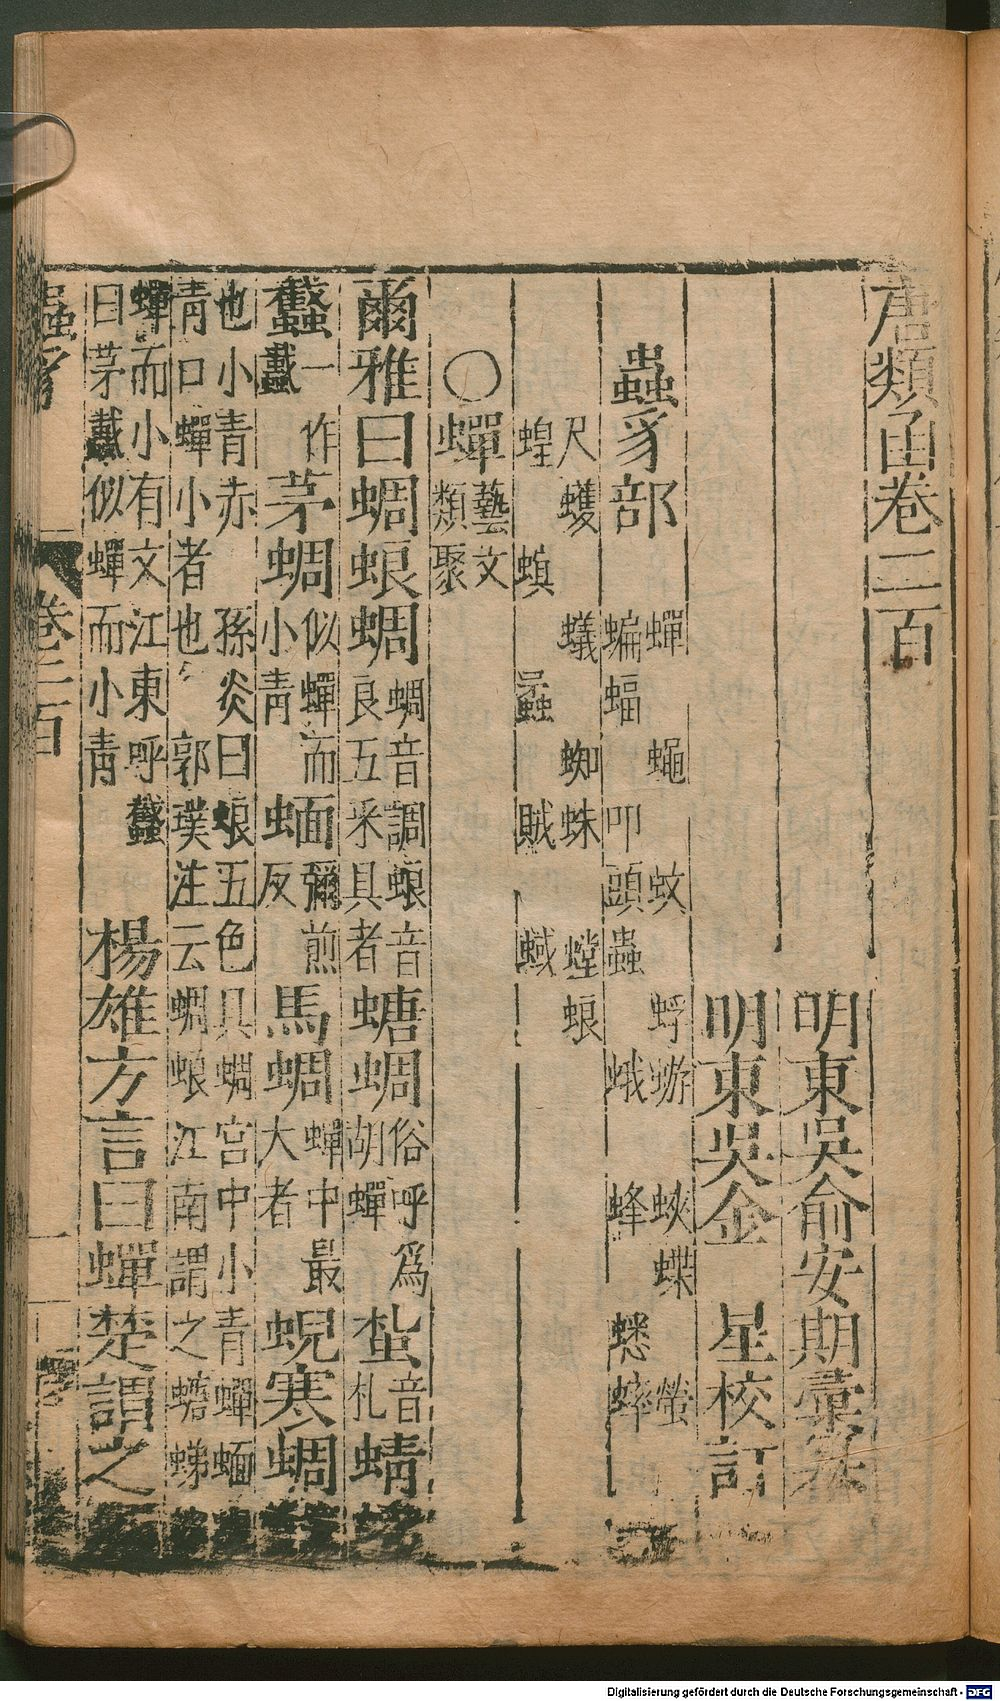 唐類函卷二百
明東吳俞安期彙纂
明東吳金 星校訂
蟲豸部
蟬 蠅 蚊 蜉蝣 蛺蝶 螢
蝙蝠 叩頭蟲 蛾 蜂 蟋蟀
尺蠖 蟻 蜘蛛 螳蜋
蝗 螟 蟊 賊 蜮
○蟬 藝文類聚
爾雅曰蜩蜋蜩 蜩音調蜋音良五采具者 螗蜩 俗呼爲胡蟬 蚻 音札 蜻
蠽 一作 茅蜩 似蟬而小靑 蝒 彌煎反 馬蜩 蟬中最大者 蜺寒蜩
也小青赤 孫炎曰蜋五色具蜩宮中小青蟬蝒
靑口蟬小者也 郭璞注云蜩蜋江南謂之螗蛦
蟬而小有文江東呼 蠽
曰茅 似蟬而小靑 楊雄方言曰蟬楚謂之
蟲豸 卷二百 一
Digitalisierung gefördert durch die Deutsche Forschungsgemeinschaft - DFG